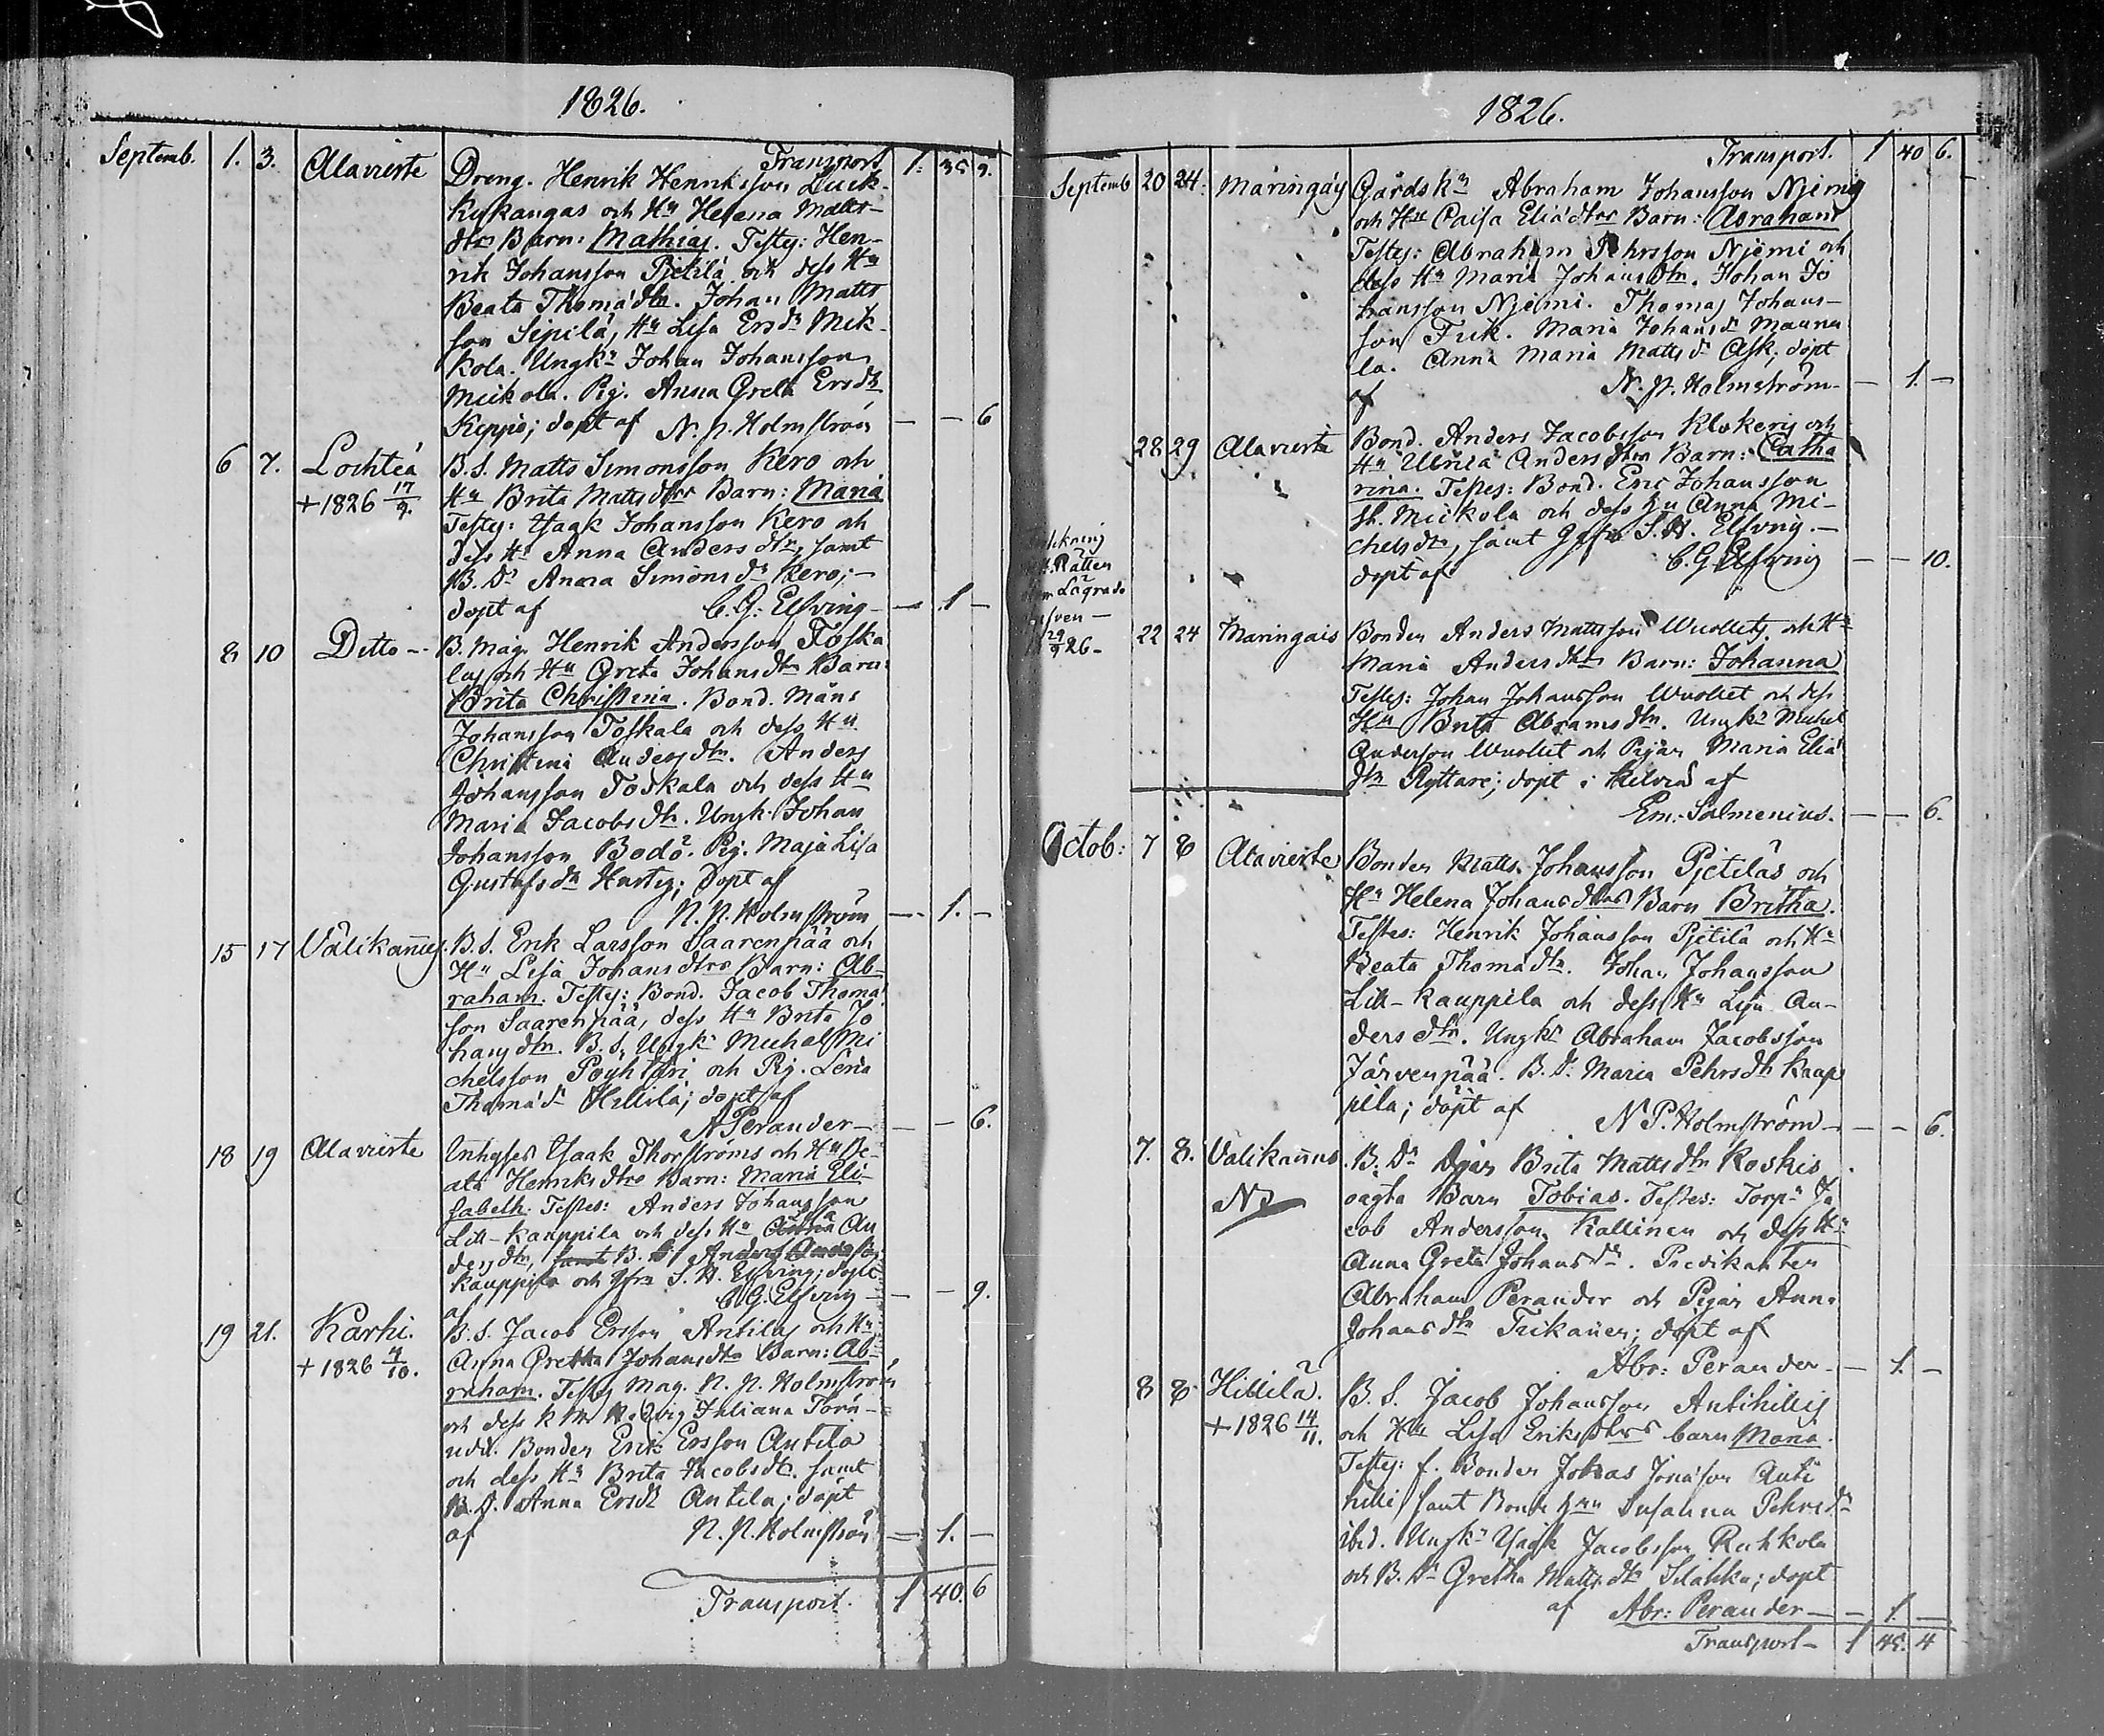 1826.
Transport 1. 35 9.
Septemb. 1. 3. Alavirte Dreng. Henrik Henriksson
kykangas och Hu Helena Matts-
dtrs Barn: Mathias. Testes: Hen-
rik Johansson Pjetilä och dess Hu
Beata Thomädtr. Johan Matts
son Sipilä, Hu Lisa Ersdr Mik-
kola. Ungkn Johan Johansson
Mickola. Pig. Anna Greta Ersdtr
Keppo; döpt af N. P. Holmström — — 6
6 7. Lochteå B. S. Matts Simonsson Kero och
+ 1826 17/9. Hu Brita Mattsdtrs Barn: Maria
Testes: Isaak Johansson Kero och
dess Hu Anna Andersdtr, samt
B. Dr Anna Simonsdr Kero; —
döpt af C. G. Elfving — 1 —
8 10 Ditto — B. Måg. Henrik Andersson Toska
las och Hu Greta Johansdtrs Barn:
Brita Christina. Bond. Måns
Johansson Toskala och dess Hu
Christina Andersdtr. Anders
Johansson Toskala och dess Hu
Maria Jacobsdtr. Ungk. Johan
Johansson Bodö. Pig. Maja Lisa
Gustafsdtr; döpt af
N. P. Holmström — 1. —
15 17 Välikannus. B. S. Erik Larsson Saarenpää och
Hu Lisa Johansdtrs Barn: Ab-
raham. Testes: Bond. Jacob Thoma
son Saarenpää, dess Hu Brita Jo
hansdtr. B. S. Ungkn Michel Mi
chelsson och Pig. Lena
Thomädr Hillilä; döpt af
A Perander — — 6.
18 19 Alavirte Inhyses Isaak Thorströms och Hu Be-
ata Henriksdtrs Barn: Maria Eli-
sabeth. Testes: Anders Johansson
Lill-kauppila och dess Hu An
dersdtr, samt B. S. Anders
Kauppila och Jfru S. H. Elfving; döpt
af C. G. Elfving — — 9.
19 21. Karhi. B. S. Jacob Ersson Antilas och Hu
+ 1826 4/10. Anna Gretha Johansdtrs Barn: Ab-
raham. Testes Mag. N. P. Holmström
och dess Juliana Törn-
udd. Bonden Erik Ersson Antila
och dess Hu Brita Jacobsdtr. samt
B. D. Anna Ersdtr Antila; döpt
af N. P. Holmström — 1. —
Transport. 1 40. 6
1826. 251
Transport. 1 40 6.
Septemb 20 24. Maringais Gårdskn Abraham Johansson Njemis
och Hu Caisa Eliädtrs Barn: Abraham
Testes: Abraham Pehrsson Njemi och
dess Hu Maria Johansdtr. Johan Jo
hansson Njemi. Thomas Johans-
son Fick. Maria Johansdr Mauna
la. Anna Maria Mattsdr Ask; döpt
af N. P. Holmström — 1. —
28 29 Alavirte Bond. Anders Jacobsson och
Hu Ulrica Andersdtrs Barn: Catha
rina. Testes: Bond. Eric Johansson
St. Mickola och dess Hu Anna Mi-
chelsdtr, samt Jfru S. H. Elfving. —
döpt af C. G. Elfving — — 10.
H. Rätten
29/9 26.
22 24 Maringais Bonden Anders Mattsson Wuollets och Hu
Maria Andersdtrs Barn: Johanna
Testes: Johan Johansson Wuollet och dess
Hu Brita Abramsdtr. Ungkn Michel
Andersson Wuollet och Pigan Maria Eliä
dtr Ryttare; döpt i Kelviå af
Em. Salmenius. — — 6.
Octob: 7 8 Alavirte Bonden Matts Johansson Pjetiläs och
Hu Helena Johansdtrs Barn Britha.
Testes: Henrik Johansson Pjetilä och Hu
Beata Thomädtr. Johan Johansson
Lill-kauppila och dess Hu Lisa An-
dersdtr. Ungkn Abraham Jacobsson
Järvenpää. B. Dr Maria Pehrsdtr Kaup
pila; döpt af N P. Holmström — — 6.
7. 8. Välikannus. B. Dr Pigan Brita Mattsdtr Koskis
oägta Barn Tobias. Testes: Torpn Ja
cob Andersson Kallinen och dess Hu
Anna Greta Johansdr. Predikanten
Abraham Perander och Pigan Anna
Johansdtr; döpt af
Abr: Perander — 1. —
8 8 Hillilä. B. S. Jacob Johansson Antihillis
+ 1826 14/11. och Hu Lisa Eriksdtrs barn Maria.
Testes: f. Bonden Johan Anti
hilli samt Bonde Hun Susanna Pehrsdr
ibid. Ungkn Isaak Jacobsson Ruhkola
och B. Dr Gretha Mattsdtr; döpt
af Abr: Perander — 1. —
Transport — 1 45. 4